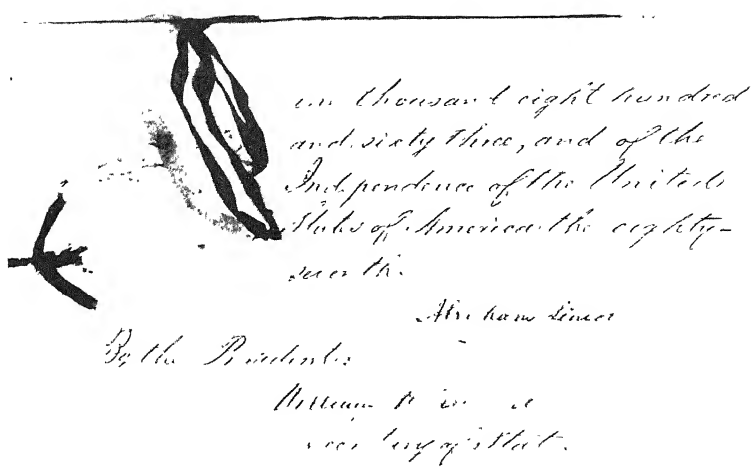 thousand eight hundred
and sixty three, and of the
Independence of the United
States of America the eighty-
seventh.
Abraham Lincoln
By the President:
William
Secretary of State.